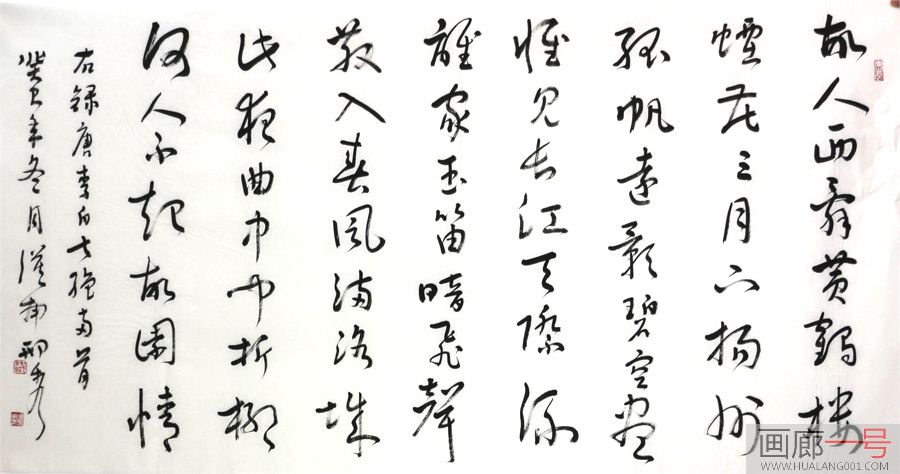 故人西辞黄鹤楼
煙花三月下扬州
孤帆遠影碧空尽
惟见长江天際流
誰家玉笛暗飛聲
散入春風满洛城
此夜曲中闻折柳
何人不起故園情
右録唐李白七绝两首
癸巳年冬月
画廊一号
WWW.HUALANG001.COM